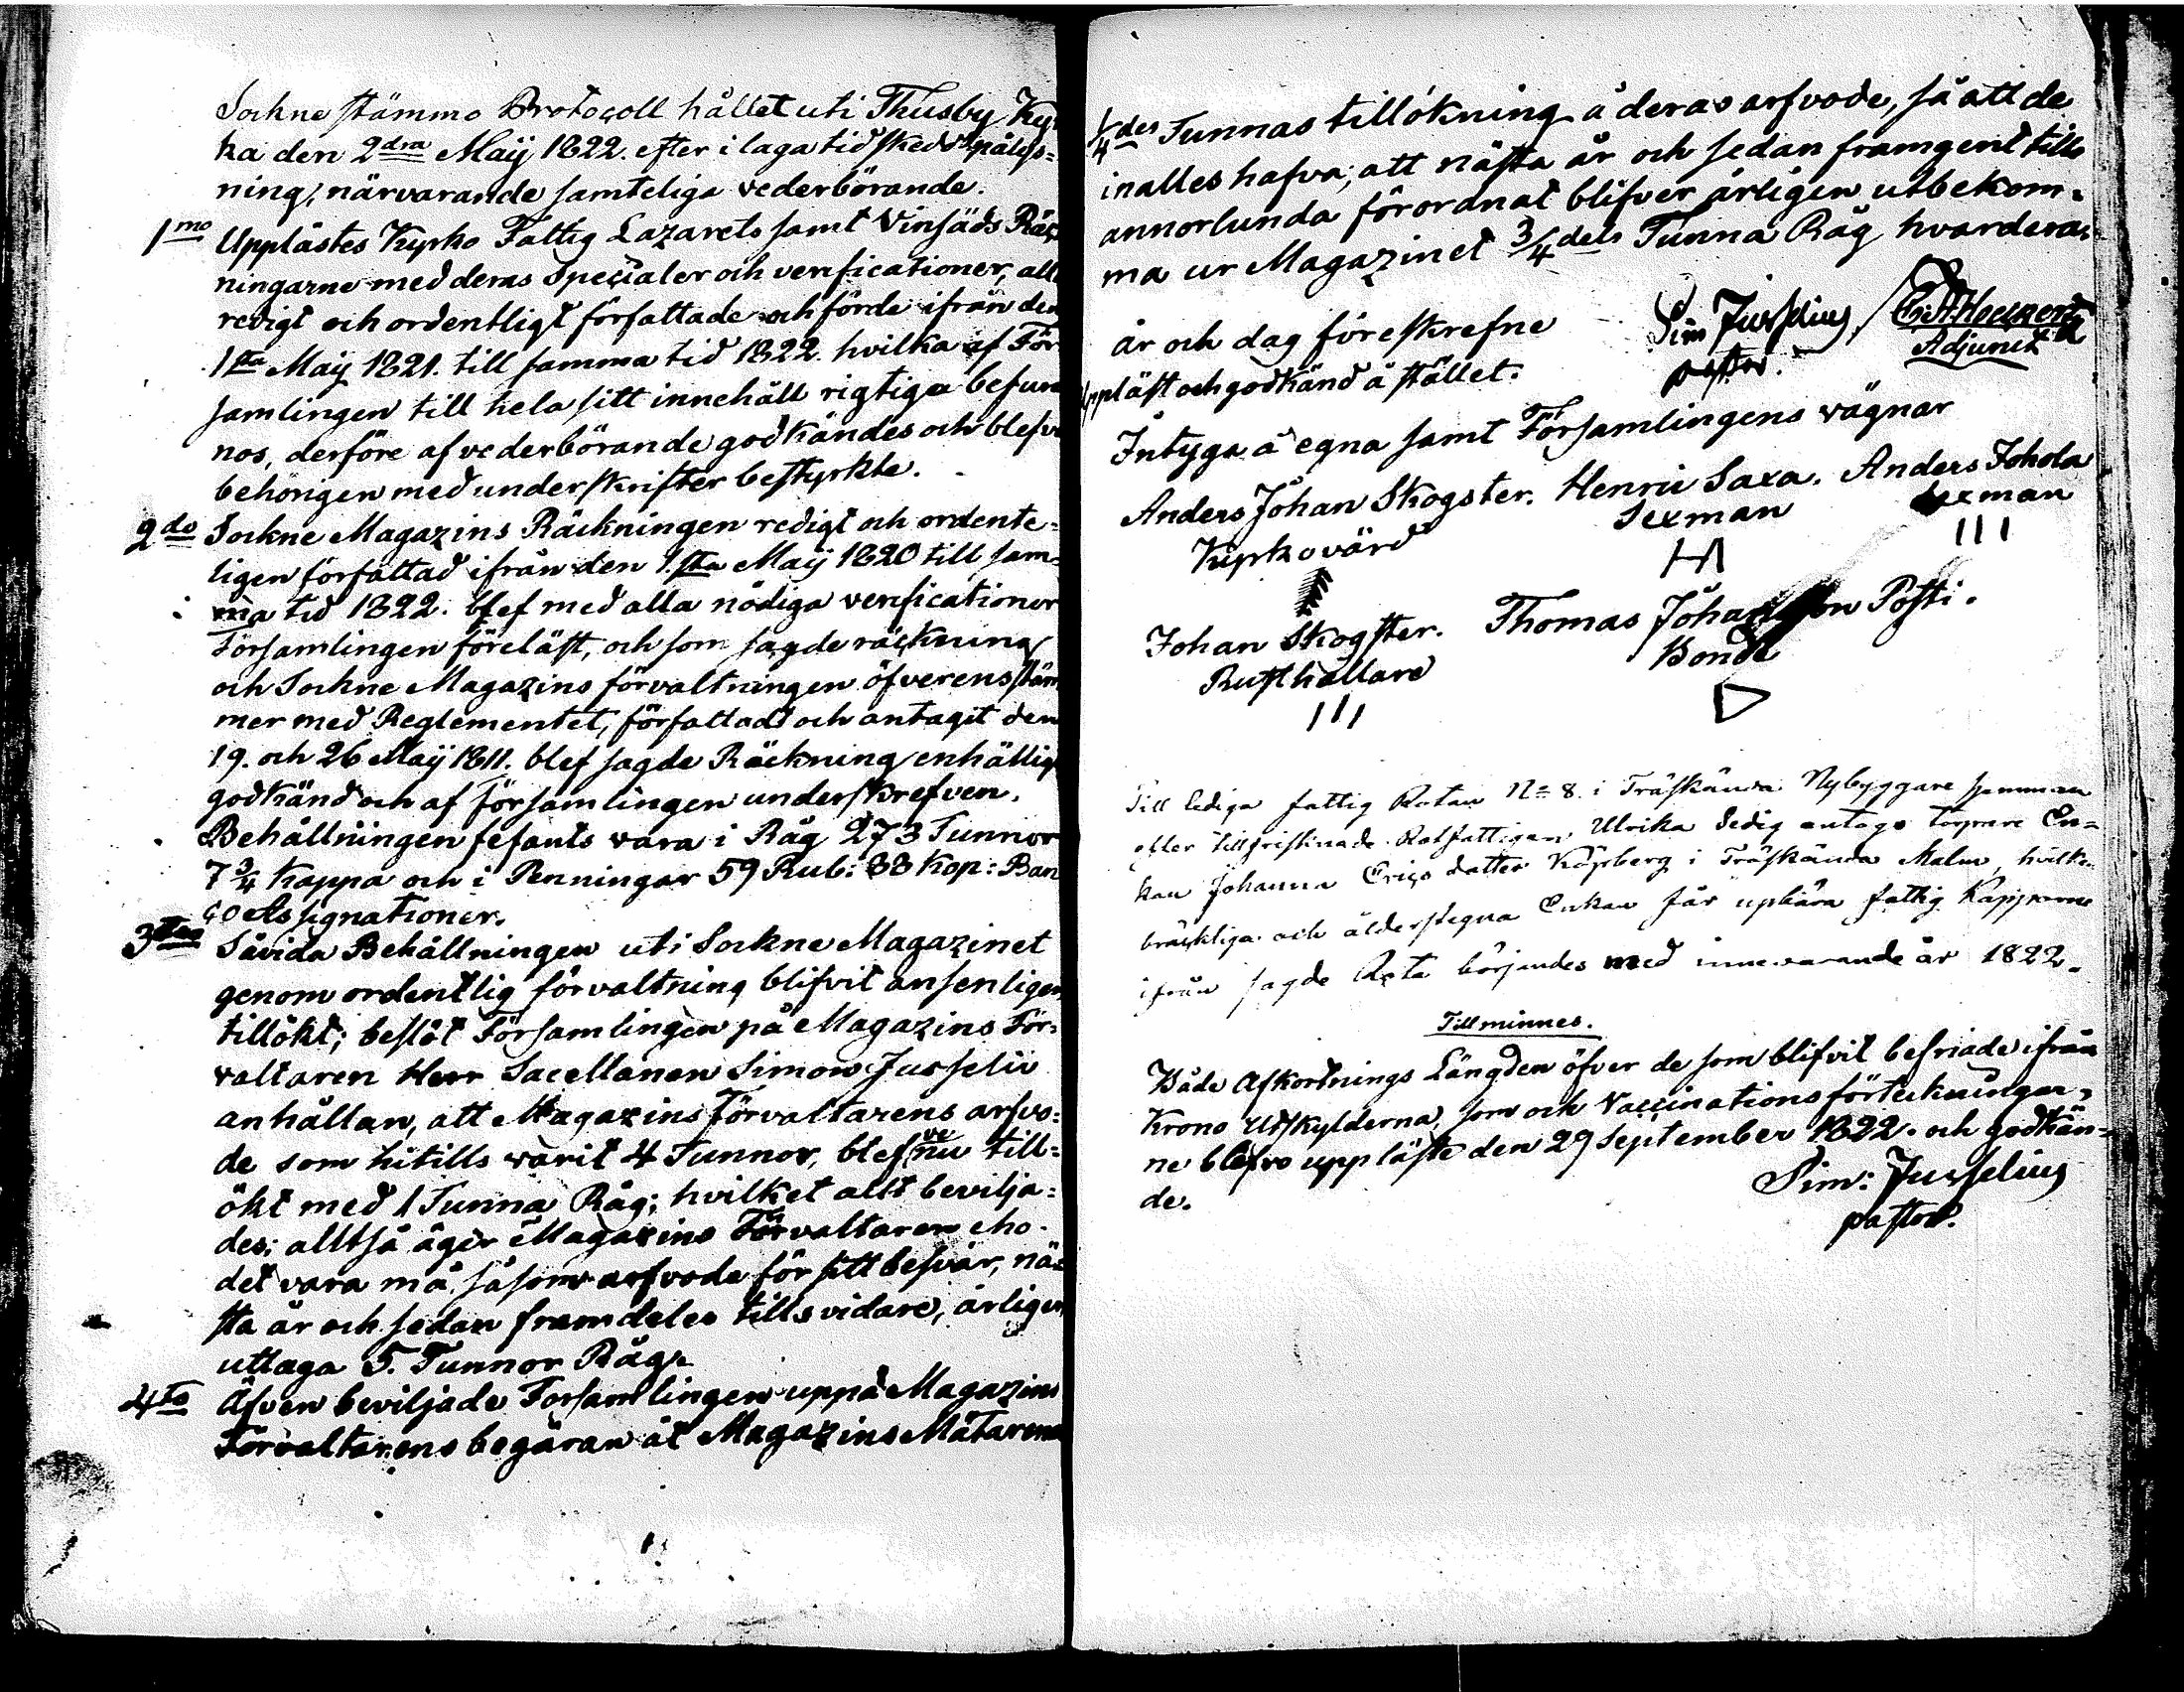 Sockne stämmo Protocoll hållet uti Thusby Kyr
ka den 2dra Maij 1822. efter i laga tid skedd pålys=
ning, närvarande samteliga vederbörande.
1mo Upplästes Kyrko Fattig Lazarets samt Vinsäds Räk
ningarne med deras Specialer och verificationer, allt
redigt och ordentligt författade och förde ifrån den
1sta Maij 1821. till samma tid 1822. hvilka af För
samlingen till hela sitt innehåll rigtiga befun
nos, derföre af vederbörande godkändes och blefvo
behörigen med underskrifter bestyrkte.
2do Sockne Magazins Räckningen redigt och ordente=
ligen författad ifrån den 1sta Maij 1820 till sam=
ma tid 1822. blef med alla nödiga verificationer
Församlingen föreläst, och som sagde räckning
och Sockne Magazins förvaltningen öfverensstäm
mer med Reglementet, författadt och antagit den
19. och 26 Maij 1811. blef sagde Räckning enhällig
godkänd och af församlingen underskrefven.
Behållningen fefants vara i Råg 273 Tunnor
7 3/4 Kappa och i Penningar 59 Rub: 88 Kop: Ban
co Assignationer.
3tio Såvida Behållningen uti Sockne Magazinet
genom ordentlig förvaltning blifvit ansenligen
tillökt; beslöt Församlingen på Magazins För=
valtaren Herr Sacellanen Simon Jusselii
anhållan, att Magazins Förvaltarens arfvo=
de som hitills varit 4 Tunnor, blefve nu till=
ökt med 1 Tunna Råg; hvilket allt bevilja=
des; alltså äger Magazins Förvaltaren eho
det vara må, såsom arfvode för sitt besvär, nä=
sta år och sedan framdeles tills vidare, årligen
uttaga 5. Tunnor Råg.
4to Äfven beviljade Församlingen uppå Magazins
Förvaltarens begäran åt Magazins Mätarena
1/4des Tunnas tillökning å deras arfvode, så att de
inalles hafva, att nästa år och sedan framgent tills
annorlunda förordnat blifver årligen utbekom=
ma ur Magazinet 3/4dels Tunna Råg hvardera
år och dag föreskrefne
Sim Jusselius, pastor.
Adjunct
Uppläst och godkänd å stället.
Intyga å egna samt Församlingens vägnar
Anders Johan Skogster. Henric Saxa. Anders Johola
Kyrkovärd Sexman Sexman
Johan Skogster. Thomas Johansson Posti.
Rusthållare Bonde
Till lediga fattig Rotan No 8. i Träskända Nybyggare hemman
efter tillfrisknade Rotfattigan Ulrika Sedig antogs torpare En=
kan Johanna Erics dotter Köpberg i Träskända Malm, hvilken
bräckliga och ålderstegna Enkan får upbära fattig Kapparne
ifrån sagde Rota börjandes med innevarande år 1822.
Till minnes.
Både Afkortnings Längden öfver de som blifvit befriade ifrån
Krono Utskylderna, som och Vaccinations förteckningar=
ne blefvo uppläste den 29 September 1822. och godkän=
de.
Sim: Jusselius
pastor.